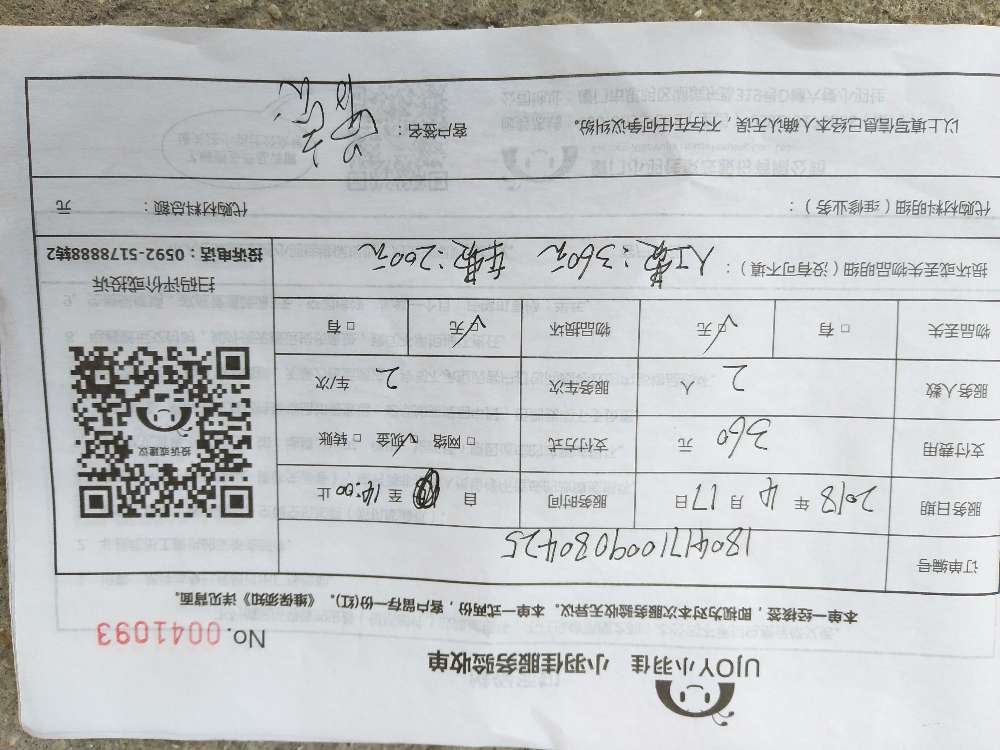 UJOY小羽佳 小羽佳服务验收单
No. 0041093
本单一经接签，即视为对本次服务验收无异议。本单一式两份，客户留存一份(红)。《维保须知》详见背面。
订单编号 1804171009080425
服务日期 2018 年 4 月 17 日 服务时间 自 至 14:00 止
支付费用 360 元 支付方式 □ 网络 ☑ 现金 □ 转账
服务人数 2 人 服务车次 2 车/次
物品丢失 □ 有 ☑ 无 物品损坏 ☑ 无 □ 有
损坏或丢失物品明细（没有可不填）： 人工费：360元 车费：200元
投诉或建议
扫码评价或投诉
投诉电话：0592-5178888转2
代购材料明细（维修业务）： 代购材料总额： 元
以上填写信息已经本人确认无误，不存在任何争议纠纷。 客户签名：